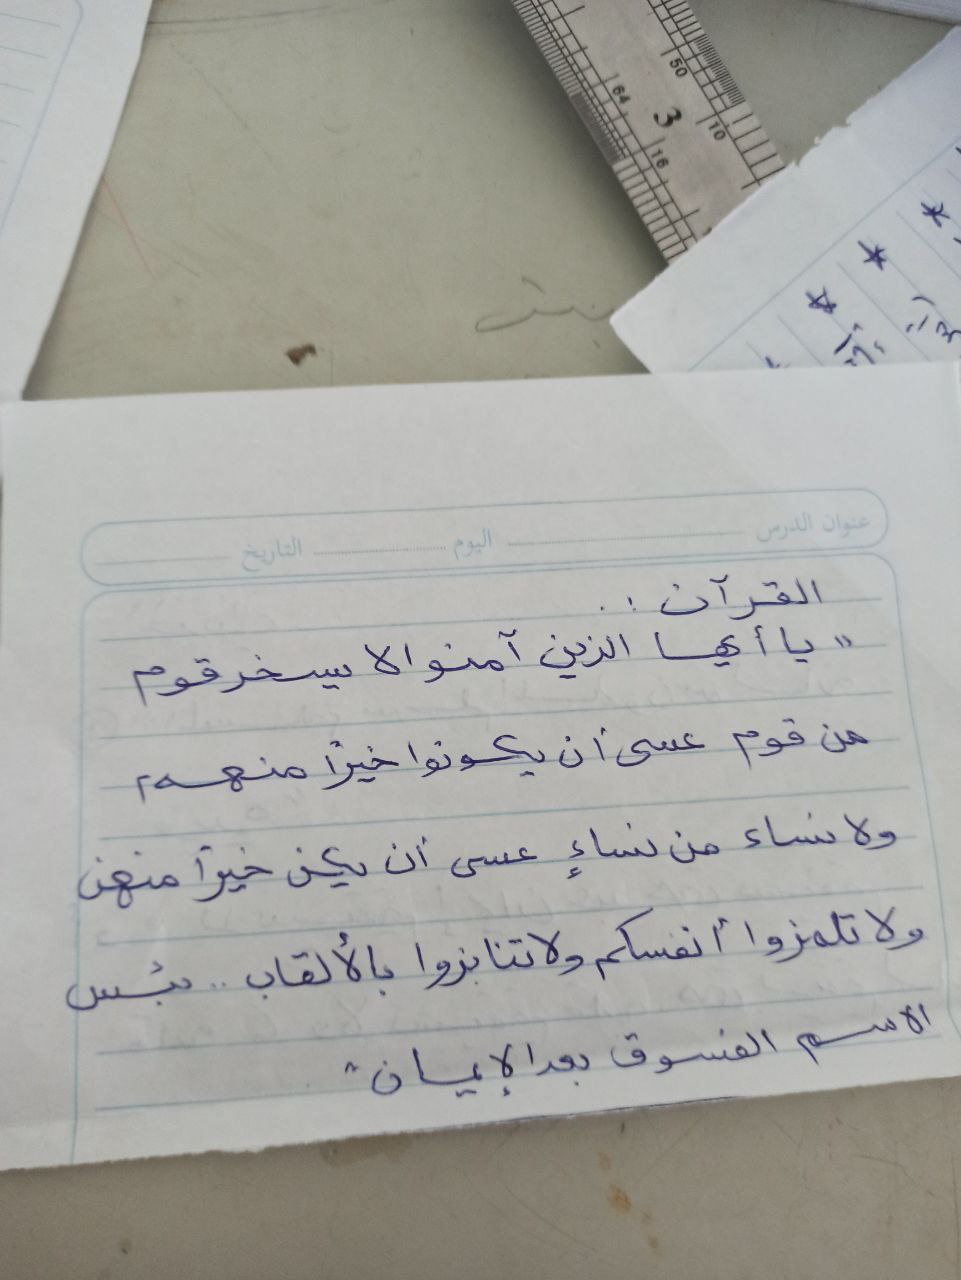 50
64
3
10
16
عنوان الدرس اليوم التاريخ
القرآن :..
"يا أيها الذين آمنوا لا يسخر قوم
من قوم عسى أن يكونوا خيرًا منهم
ولا نساء من نساءٍ عسى أن يكن خيرًا منهن
ولا تلمزوا أنفسكم ولا تنابزوا بالألقاب .. بئس
الاسم الفسوق بعد الإيمان"